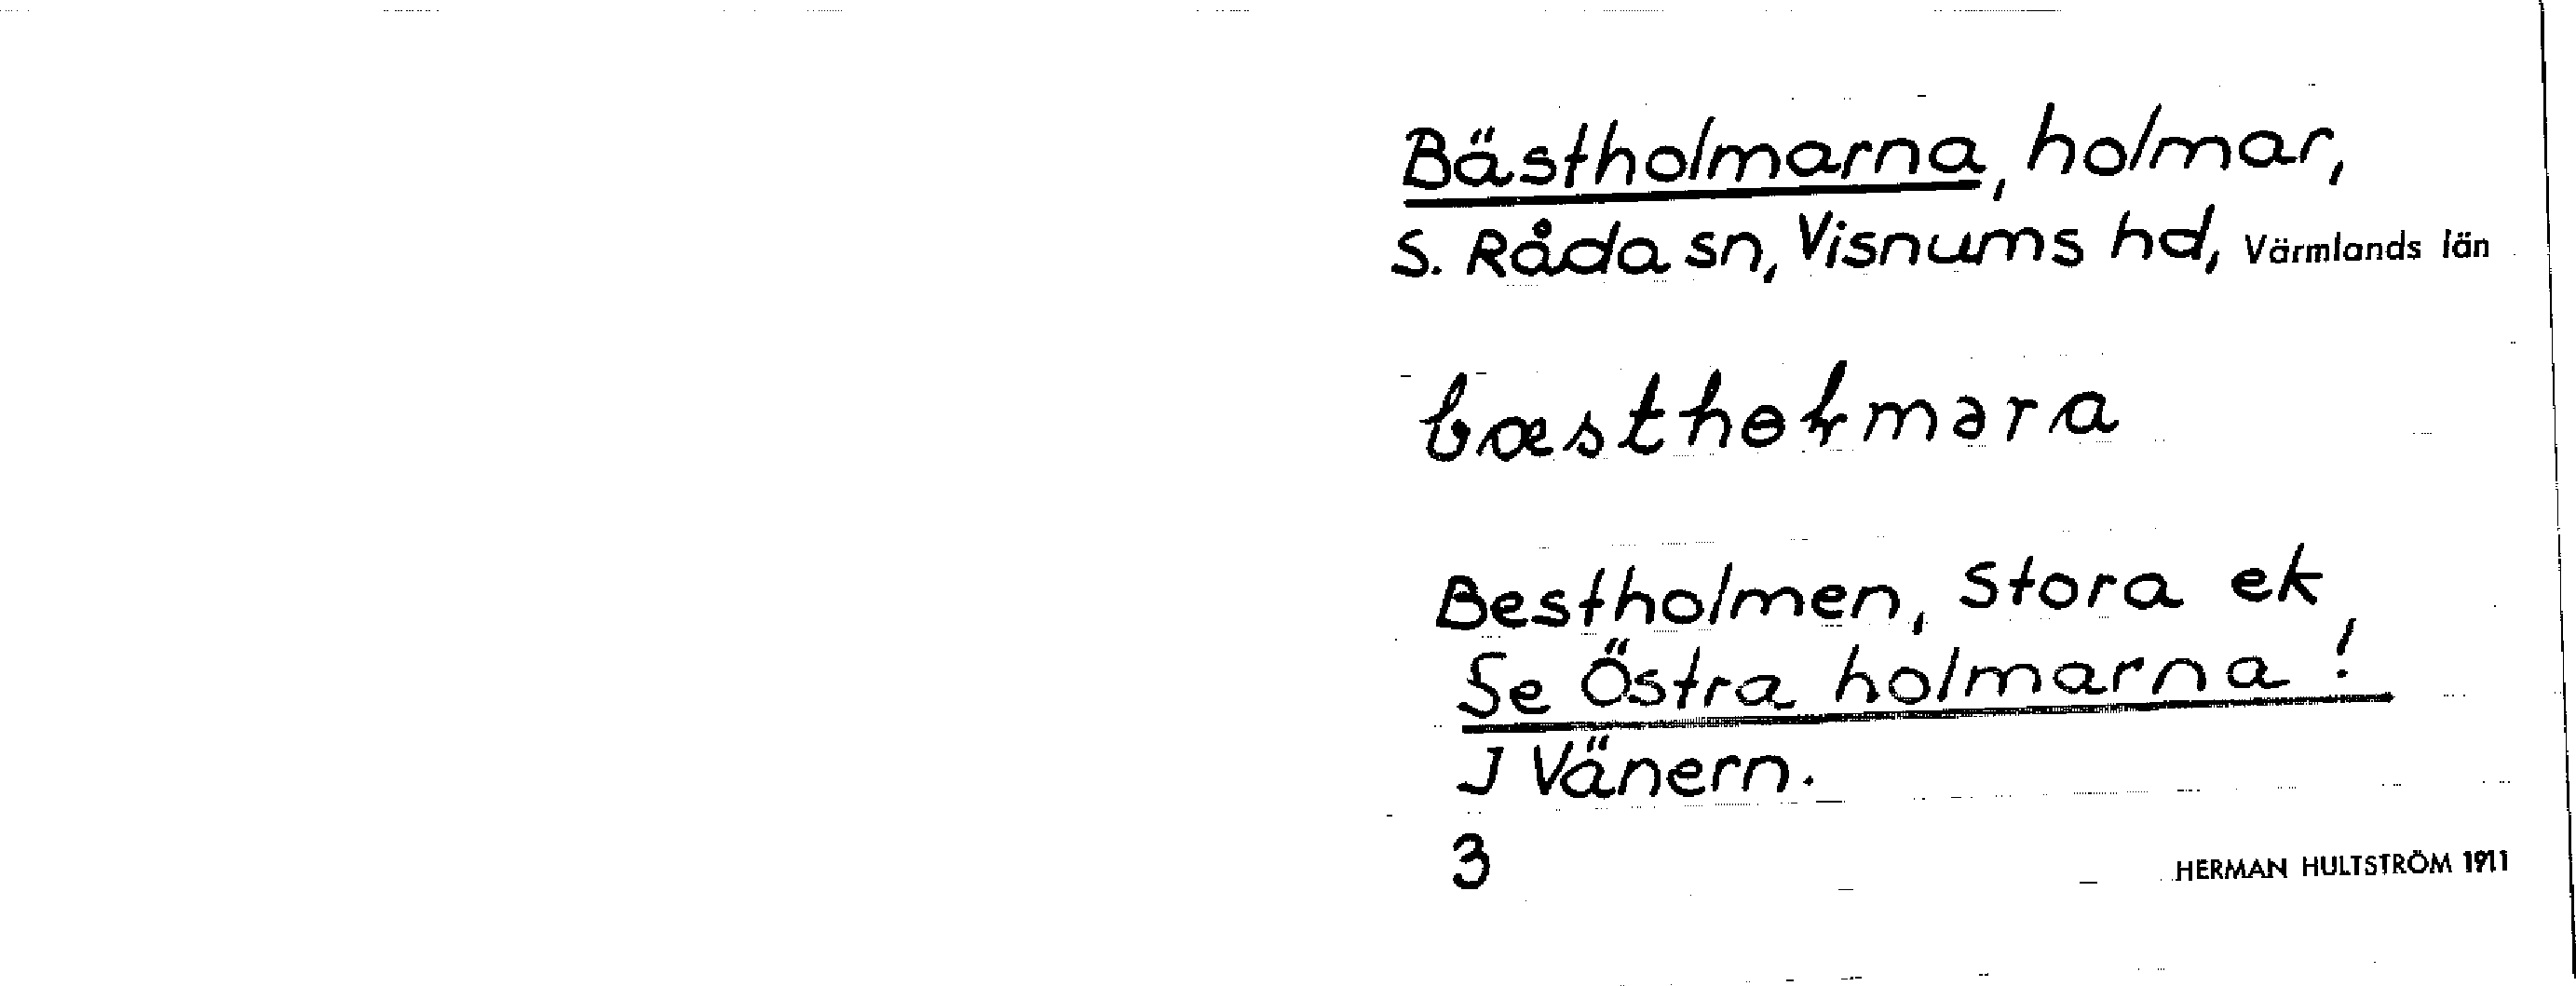 Bästholmarna, holmar,
S. Råda sn, Visnums hd, Värmlands län
Bestholmen, Stora ek
Se Östra holmarna!
I Vänern.
3
HERMAN HULTSTRÖM 1911